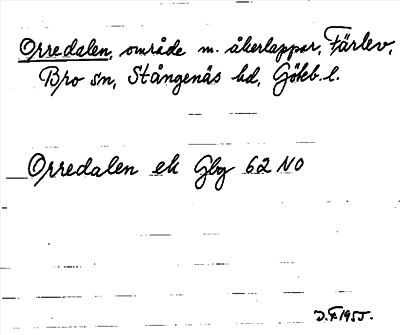 Orredalen, område m. åkerlappar, Färlev,
Bro sn, Stångenäs hd, Göteb. l.
Orredalen ek Gbg 62 NO
D.F. 1955.